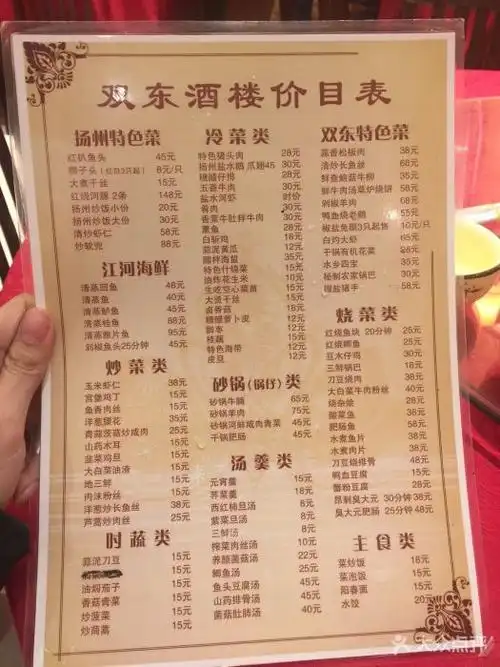 双东酒楼价目表
扬州特色菜
红扒鱼头 45元
狮子头(红白3只起) 8元/只
大煮干丝 15元
红烧河豚 2条 148元
扬州炒饭小份 20元
扬州炒饭大份 30元
清炒虾仁 58元
炒软兜 88元
江河海鲜
清蒸回鱼 48元
清蒸鱼 40元
清蒸鲈鱼 45元
清蒸桂鱼 88元
清蒸雅片鱼 95元
剁椒鱼头25分钟 45元
炒菜类
玉米虾仁 38元
宫堡鸡丁 15元
鱼香肉丝 15元
洋葱腰花 35元
青蒜茨菇炒咸肉 25元
山药木耳 15元
韭菜鸡旦 15元
大白菜油渣 15元
地三鲜 15元
肉沫粉丝 15元
洋葱炒长鱼丝 38元
芦蒿炒肉丝 25元
时蔬类
蒜泥刀豆 15元
15元
油焖茄子 15元
香菇青菜 15元
炒菠菜 15元
炒茼蒿 15元
冷菜类
特色猪头肉 28元
扬州盐水鹅 爪翅45 30元
糖醋仔排 28元
五香牛肉 30元
盐水河虾 时价
肴肉 30元
香菜牛肚拌牛肉 30元
熏鱼 28元
白斩鸡 18元
蒜泥黄瓜 12元
醋拌海蜇 35元
特色什锦菜 15元
油炸花生米 10元
生吃空心菜苗 15元
大烫干丝 15元
卤香菇 18元
糖醋萝卜泥 10元
御枣 12元
桂藕 15元
特色海带 12元
皮旦 12元
砂锅(锅仔)类
砂锅牛腩 65元
砂锅羊肉 75元
砂锅河蚌咸肉青菜 45元
干锅肥肠 45元
汤羹类
元宵羹 15元
荠菜羹 18元
西红柿旦汤 8元
紫菜旦汤 8元
三鲜汤 8元
榨菜肉丝汤 10元
养颜菌菇汤 22元
鲫鱼汤 25元
鱼头豆腐汤 45元
山药排骨汤 45元
菌菇肚肺汤 40元
双东特色菜
蒜香松板肉 38元
清炒长鱼丝 68元
鲜杏鲍菇牛柳 35元
鲜牛肉汤草炉烧饼 58元
剁椒羊肉 68元
鸭鱼烧老鹅 55元
椒盐兔脚3只起售 10元/只
白灼大虾 60元
干锅有机花菜 38元
水乡四宝 35元
秘制农家锅巴 30元
椒盐猪手 58元
烧菜类
红烧鱼块 20分钟 25元
红烧鲫鱼 25元
豆木仔鸡 30元
三鲜锅巴 18元
刀豆烧肉 38元
大白菜牛肉粉丝 40元
烧杂烩 28元
酸菜鱼 38元
肥肠鱼 58元
水煮鱼片 38元
水煮肉片 38元
刀豆烧排骨 48元
鸭血豆腐 15元
蟹粉豆腐 28元
昂刺臭大元 30分钟 38元
臭大元肥肠 25分钟 48元
主食类
菜炒饭 18元
菜泡饭 15元
阳春面 15元
水饺 20元
大众点评